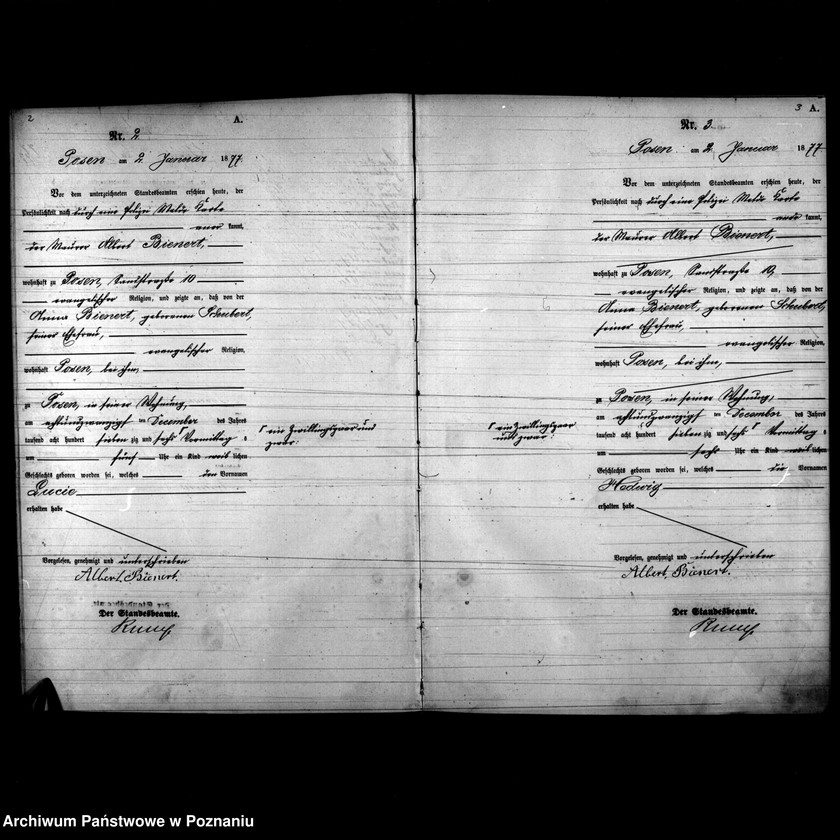 2
A.
Nr. 2
Posen am 2 Januar 1877
Vor dem unterzeichneten Standesbeamten erschien heute, der
Persönlichkeit nach durch eine Polizei Melde Karte
kannt,
der Maurer Albert Bienert,
wohnhaft zu Posen, Sandstraße 10
evangelischer Religion, und zeigte an, daß von der
Anna Bienert, geborenen Schubert,
seiner Ehefrau,
evangelischer Religion,
wohnhaft Posen, bei ihm,
zu Posen, in seiner Wohnung,
am achtundzwanzigsten December des Jahres
tausend acht hundert siebenzig und sechs Vormittag s
um fünf Uhr ein Kind weiblichen
Geschlechts geboren worden sei, welches den Vornamen
Lucie
erhalten habe
ein Zwillingspaar und
zwar:
Vorgelesen, genehmigt und unterschrieben
Albert Bienert.
Der Standesbeamte.
3 A.
Nr. 3
Posen am 2 Januar 1877
Vor dem unterzeichneten Standesbeamten erschien heute, der
Persönlichkeit nach durch eine Polizei Melde Karte
kannt,
der Maurer Albert Bienert,
wohnhaft zu Posen, Sandstraße 10,
evangelischer Religion, und zeigte an, daß von der
Anna Bienert, geborenen Schubert,
seiner Ehefrau,
evangelischer Religion,
wohnhaft Posen, bei ihm,
zu Posen, in seiner Wohnung,
am achtundzwanzigsten December des Jahres
tausend acht hundert siebenzig und sechs Vormittag s
um sechs Uhr ein Kind weiblichen
Geschlechts geboren worden sei, welches den Vornamen
Hedwig
erhalten habe
ein Zwillingspaar
und zwar:
Vorgelesen, genehmigt und unterschrieben
Albert Bienert.
Der Standesbeamte.
Archiwum Państwowe w Poznaniu